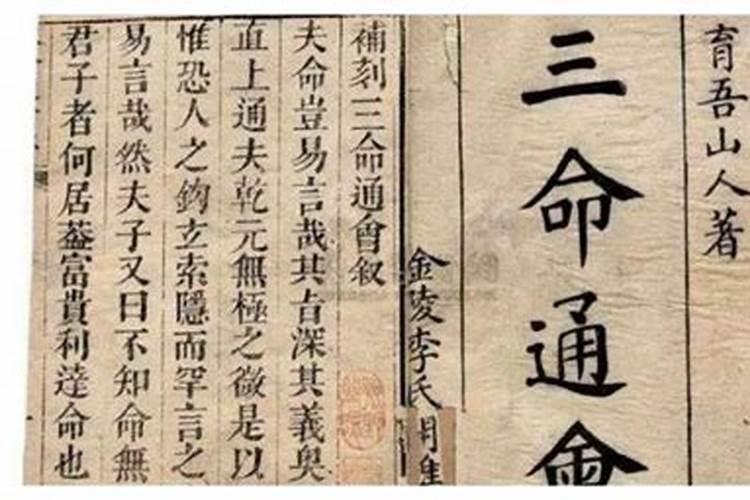 育吾山人著
三命通會
金陵李氏
補刻三命通會叙
夫命豈易言哉其旨深其義奥
直上通夫乾元無極之微是以
惟恐人之鈎玄索隱而罕言之
易言哉然夫子又曰不知命無
君子者何居葢富貴利達命也